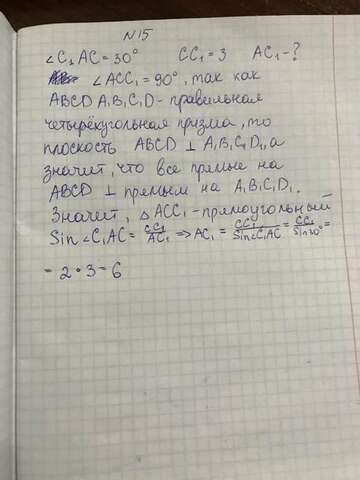 N15
∠C₁AC=30° CC₁=3 AC₁-?
∠ACC₁=90°, так как
ABCDA₁B₁C₁D - правильная
четырёхугольная призма, то
плоскость ABCD ⊥ A₁B₁C₁D₁, а
значит, что все прямые на
ABCD ⊥ прямым на A₁B₁C₁D₁.
Значит, △ACC₁ - прямоугольный
Sin∠C₁AC = CC₁/AC₁ ⇒ AC₁ = CC₁/Sin∠C₁AC = CC₁/Sin30° =
= 2 • 3 = 6